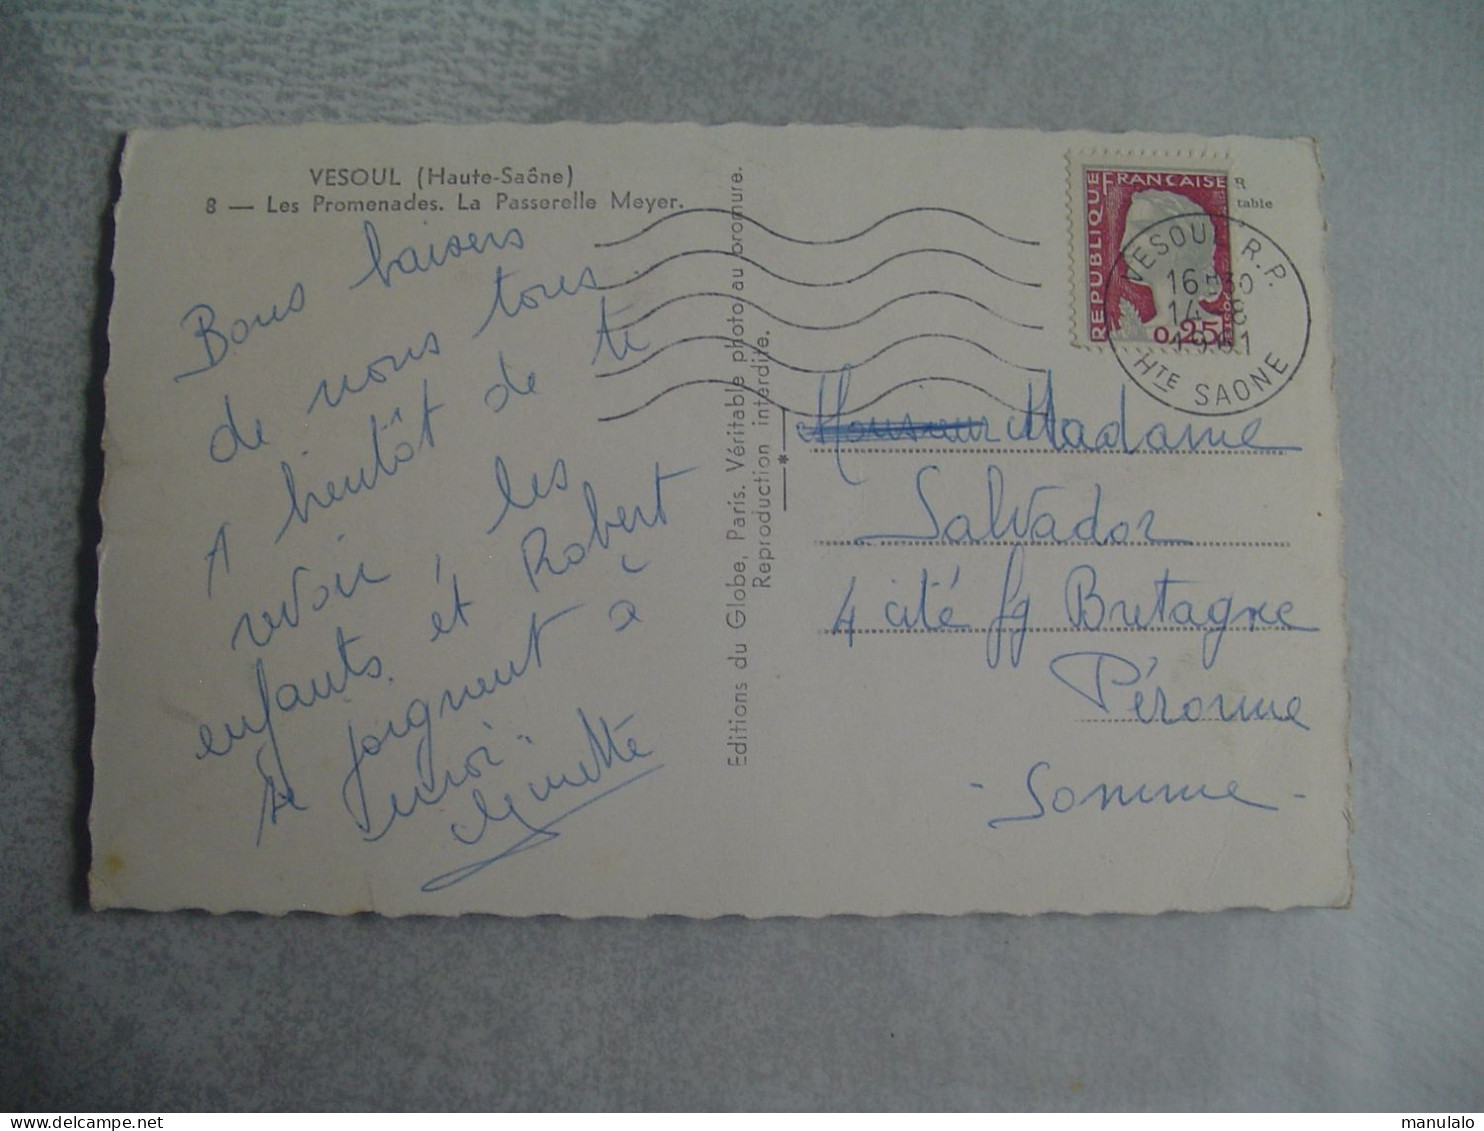 VESOUL (Haute-Saône)
8 — Les Promenades. La Passerelle Meyer.
Bons baisers
de nous tous
A bientôt de te
revoir, les
enfants et Robert
se joignent à
moi
Ginette
Editions du Globe, Paris. Véritable photo au bromure.
Reproduction interdite.
REPUBLIQUE FRANCAISE
POSTES
0,25
R
table
VESOUL R.P.
16H30
14 - 8
1961
HTE SAONE
Monsieur Madame
Salvador
4 cité fg Bretagne
Péronne
- Somme -
manulalo